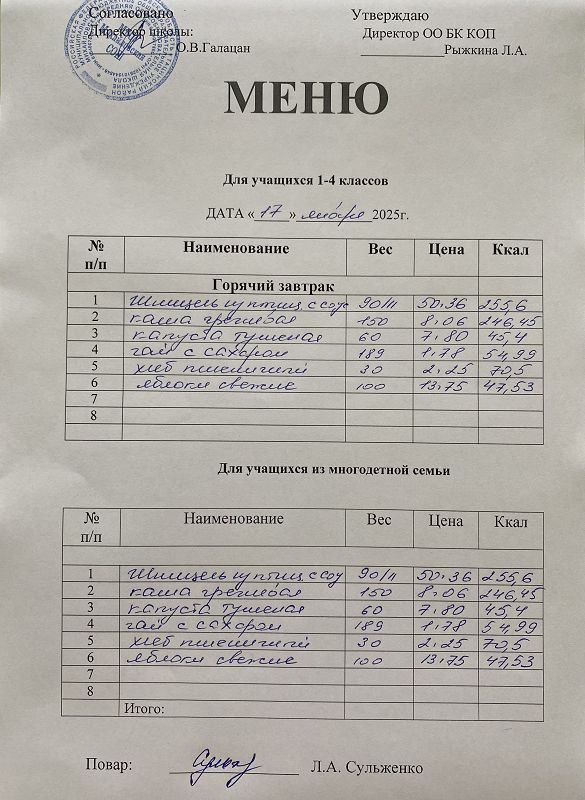 Согласовано Утверждаю
Директор школы: Директор ОО БК КОП
О.В.Галацан Рыжкина Л.А.
МЕНЮ
Для учащихся 1-4 классов
ДАТА « 17 » января 2025г.
№ п/п Наименование Вес Цена Ккал
Горячий завтрак
1 Шницель из птиц с соус 90/11 50.36 255,6
2 каша гречневая 150 8.06 246,45
3 капуста тушеная 60 7.80 45,4
4 чай с сахаром 189 1.78 54,99
5 хлеб пшеничный 30 2.25 70,5
6 яблоки свежие 100 13.75 47,53
7
8
Для учащихся из многодетной семьи
№ п/п Наименование Вес Цена Ккал
1 Шницель из птиц с соу 90/11 50.36 255,6
2 каша гречневая 150 8.06 246,45
3 капуста тушеная 60 7.80 45,4
4 чай с сахаром 189 1.78 54,99
5 хлеб пшеничный 30 2.25 70,5
6 яблоки свежие 100 13.75 47,53
7
8
Итого:
Повар: Л.А. Сульженко